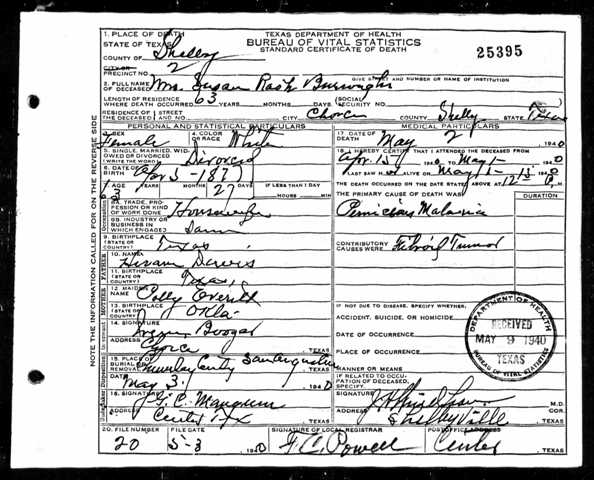 TEXAS DEPARTMENT OF HEALTH
BUREAU OF VITAL STATISTICS
STANDARD CERTIFICATE OF DEATH
25395
1. PLACE OF DEATH
STATE OF TEXAS
COUNTY OF Shelby
CITY OR
PRECINCT NO. 2
GIVE STREET AND NUMBER OR NAME OF INSTITUTION
2. FULL NAME OF DECEASED Mrs. Susan Rash Burroughs
LENGTH OF RESIDENCE WHERE DEATH OCCURRED 63 YEARS MONTHS DAYS
SOCIAL SECURITY NO.
RESIDENCE OF THE DECEASED STREET AND NO. CITY Choice COUNTY Shelby STATE Texas
PERSONAL AND STATISTICAL PARTICULARS
3. SEX Female
4. COLOR OR RACE White
5. SINGLE, MARRIED, WIDOWED OR DIVORCED (WRITE THE WORD) Divorced
6. DATE OF BIRTH 1877
7. AGE 63 YEARS MONTHS 27 DAYS IF LESS THAN 1 DAY HOURS MIN
8A. TRADE, PROFESSION OR KIND OF WORK DONE Housewife
8B. INDUSTRY OR BUSINESS IN WHICH ENGAGED
9. BIRTHPLACE (STATE OR COUNTRY) Texas
FATHER
10. NAME Hiram
11. BIRTHPLACE (STATE OR COUNTRY) Texas
MOTHER
12. MAIDEN NAME Polly Everett
13. BIRTHPLACE (STATE OR COUNTRY) Okla
14. SIGNATURE
ADDRESS TEXAS
15. PLACE OF BURIAL OR REMOVAL San Augustine TEXAS
DATE May 3 1940
16. SIGNATURE Mangum
ADDRESS TEXAS
20. FILE NUMBER 20
FILE DATE 5-3 1940
SIGNATURE OF LOCAL REGISTRAR F. C. Powell
POSTOFFICE ADDRESS Center TEXAS
MEDICAL PARTICULARS
17. DATE OF DEATH May 1 1940
18. I HEREBY CERTIFY THAT I ATTENDED THE DECEASED FROM
Apr. 15 1940 TO May 1 1940
I LAST SAW H ALIVE ON May 1 1940
THE DEATH OCCURRED ON THE DATE STATED ABOVE AT 12 M.
THE PRIMARY CAUSE OF DEATH WAS: DURATION
Pernicious Malaria
CONTRIBUTORY CAUSES WERE: Fibroid Tumor
IF NOT DUE TO DISEASE, SPECIFY WHETHER:
ACCIDENT, SUICIDE, OR HOMICIDE
DATE OF OCCURRENCE
PLACE OF OCCURRENCE
MANNER OR MEANS
IF RELATED TO OCCUPATION OF DECEASED, SPECIFY
SIGNATURE M.D. COR.
ADDRESS Shelbyville TEXAS
DEPARTMENT OF HEALTH
RECEIVED
MAY 9 1940
TEXAS
BUREAU OF VITAL STATISTICS
NOTE THE INFORMATION CALLED FOR ON THE REVERSE SIDE